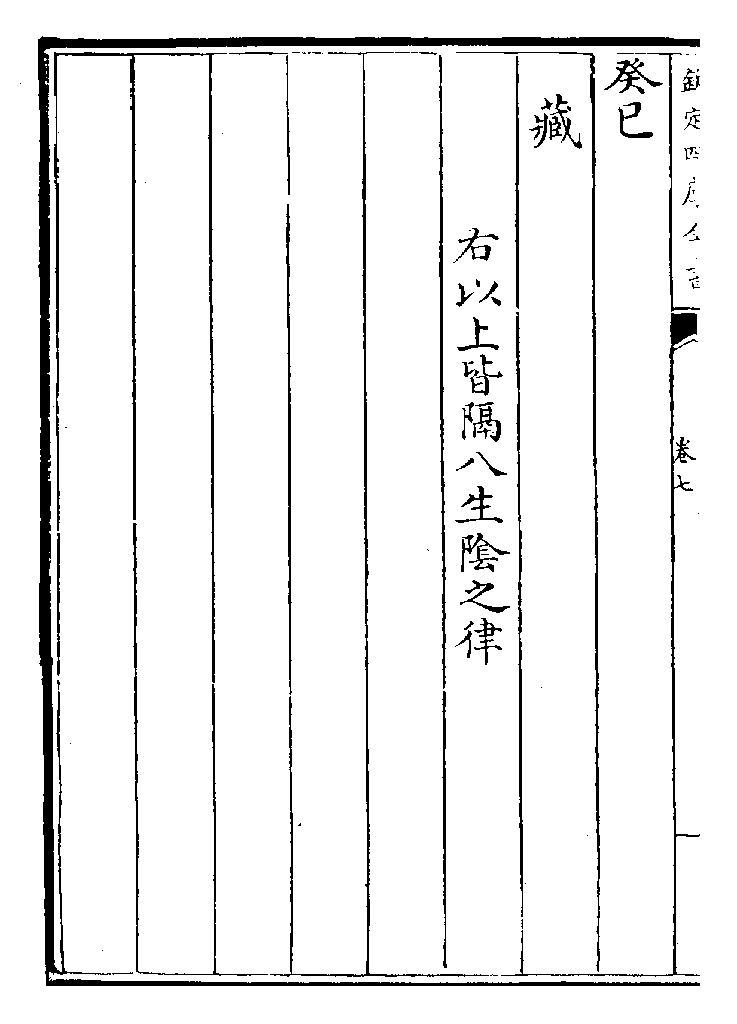 欽定四庫全書
卷七
癸巳
藏
右以上皆隔八生陰之律